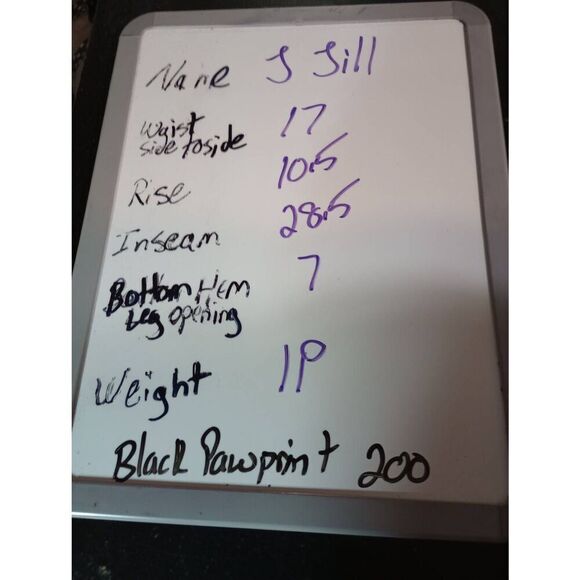 Name J Jill
Waist side to side 17
Rise 10.5
Inseam 28.5
Bottom Hem Leg opening 7
Weight 1P
Black Pawprint 200